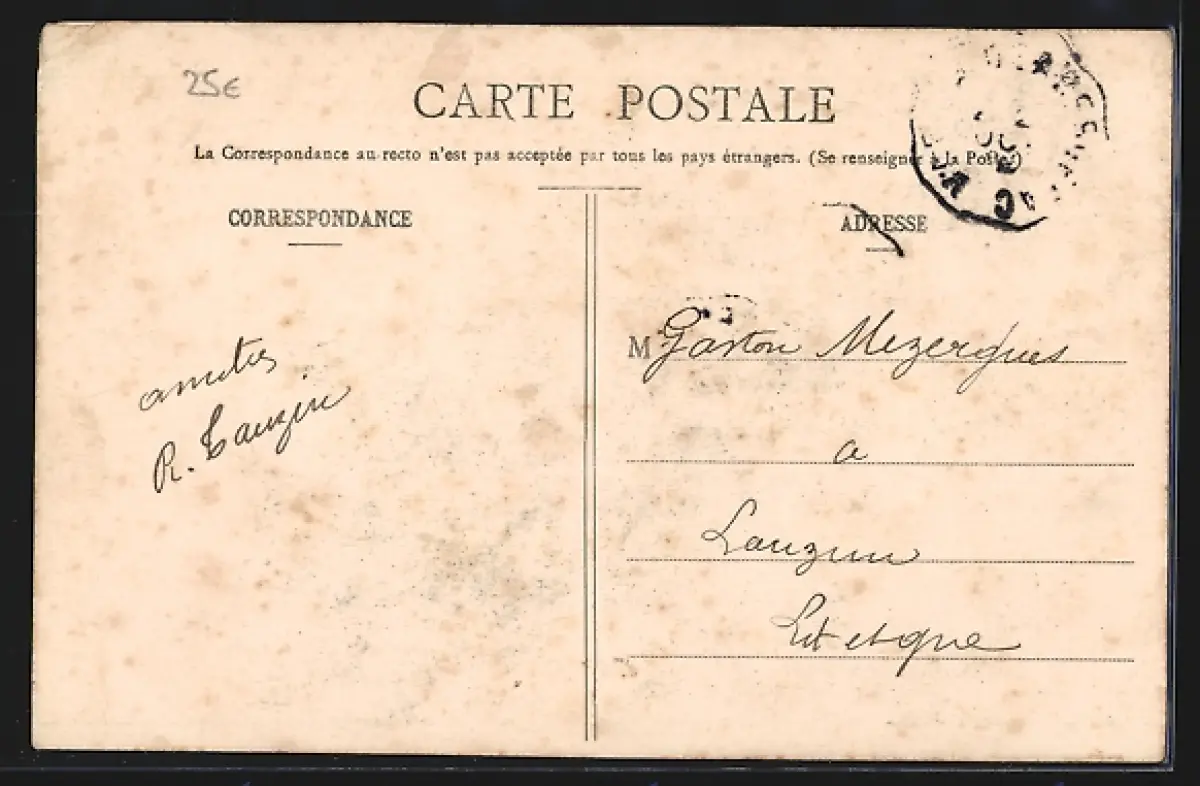 25€
CARTE POSTALE
La Correspondance au recto n'est pas acceptée par tous les pays étrangers. (Se renseigner à la Poste)
CORRESPONDANCE
ADRESSE
amitiés
R. Tauzin
M Gaston Mezergues
a
Lauzun
Lot et gne